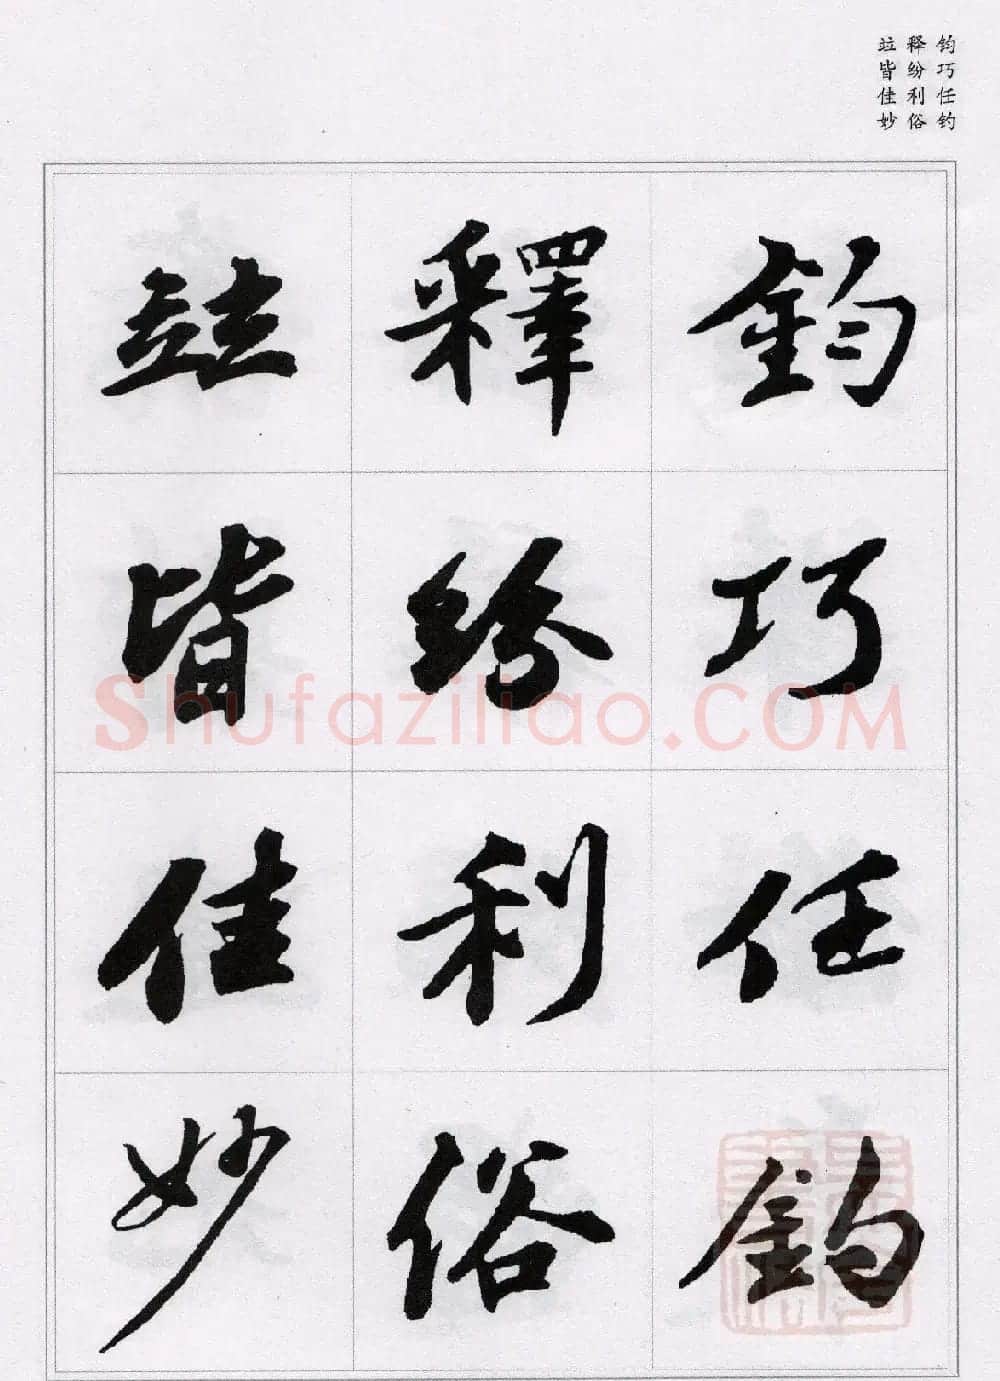 钧巧任钓
释纷利俗
竝皆佳妙
鈞巧任釣
釋紛利俗
竝皆佳妙
Shufaziliao.COM